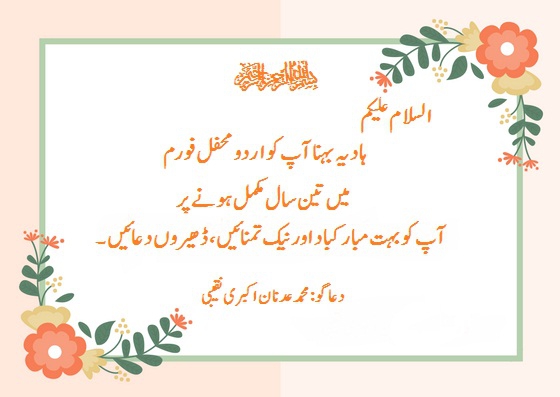 بسم اللہ الرحمن الرحیم
السلام علیکم
ہادیہ بہنا آپ کو اردو محفل فورم
میں تین سال مکمل ہونے پر
آپ کو بہت مبارکباد اور نیک تمنائیں، ڈھیروں دعائیں۔
دعاگو: محمد عدنان اکبری نقیبی